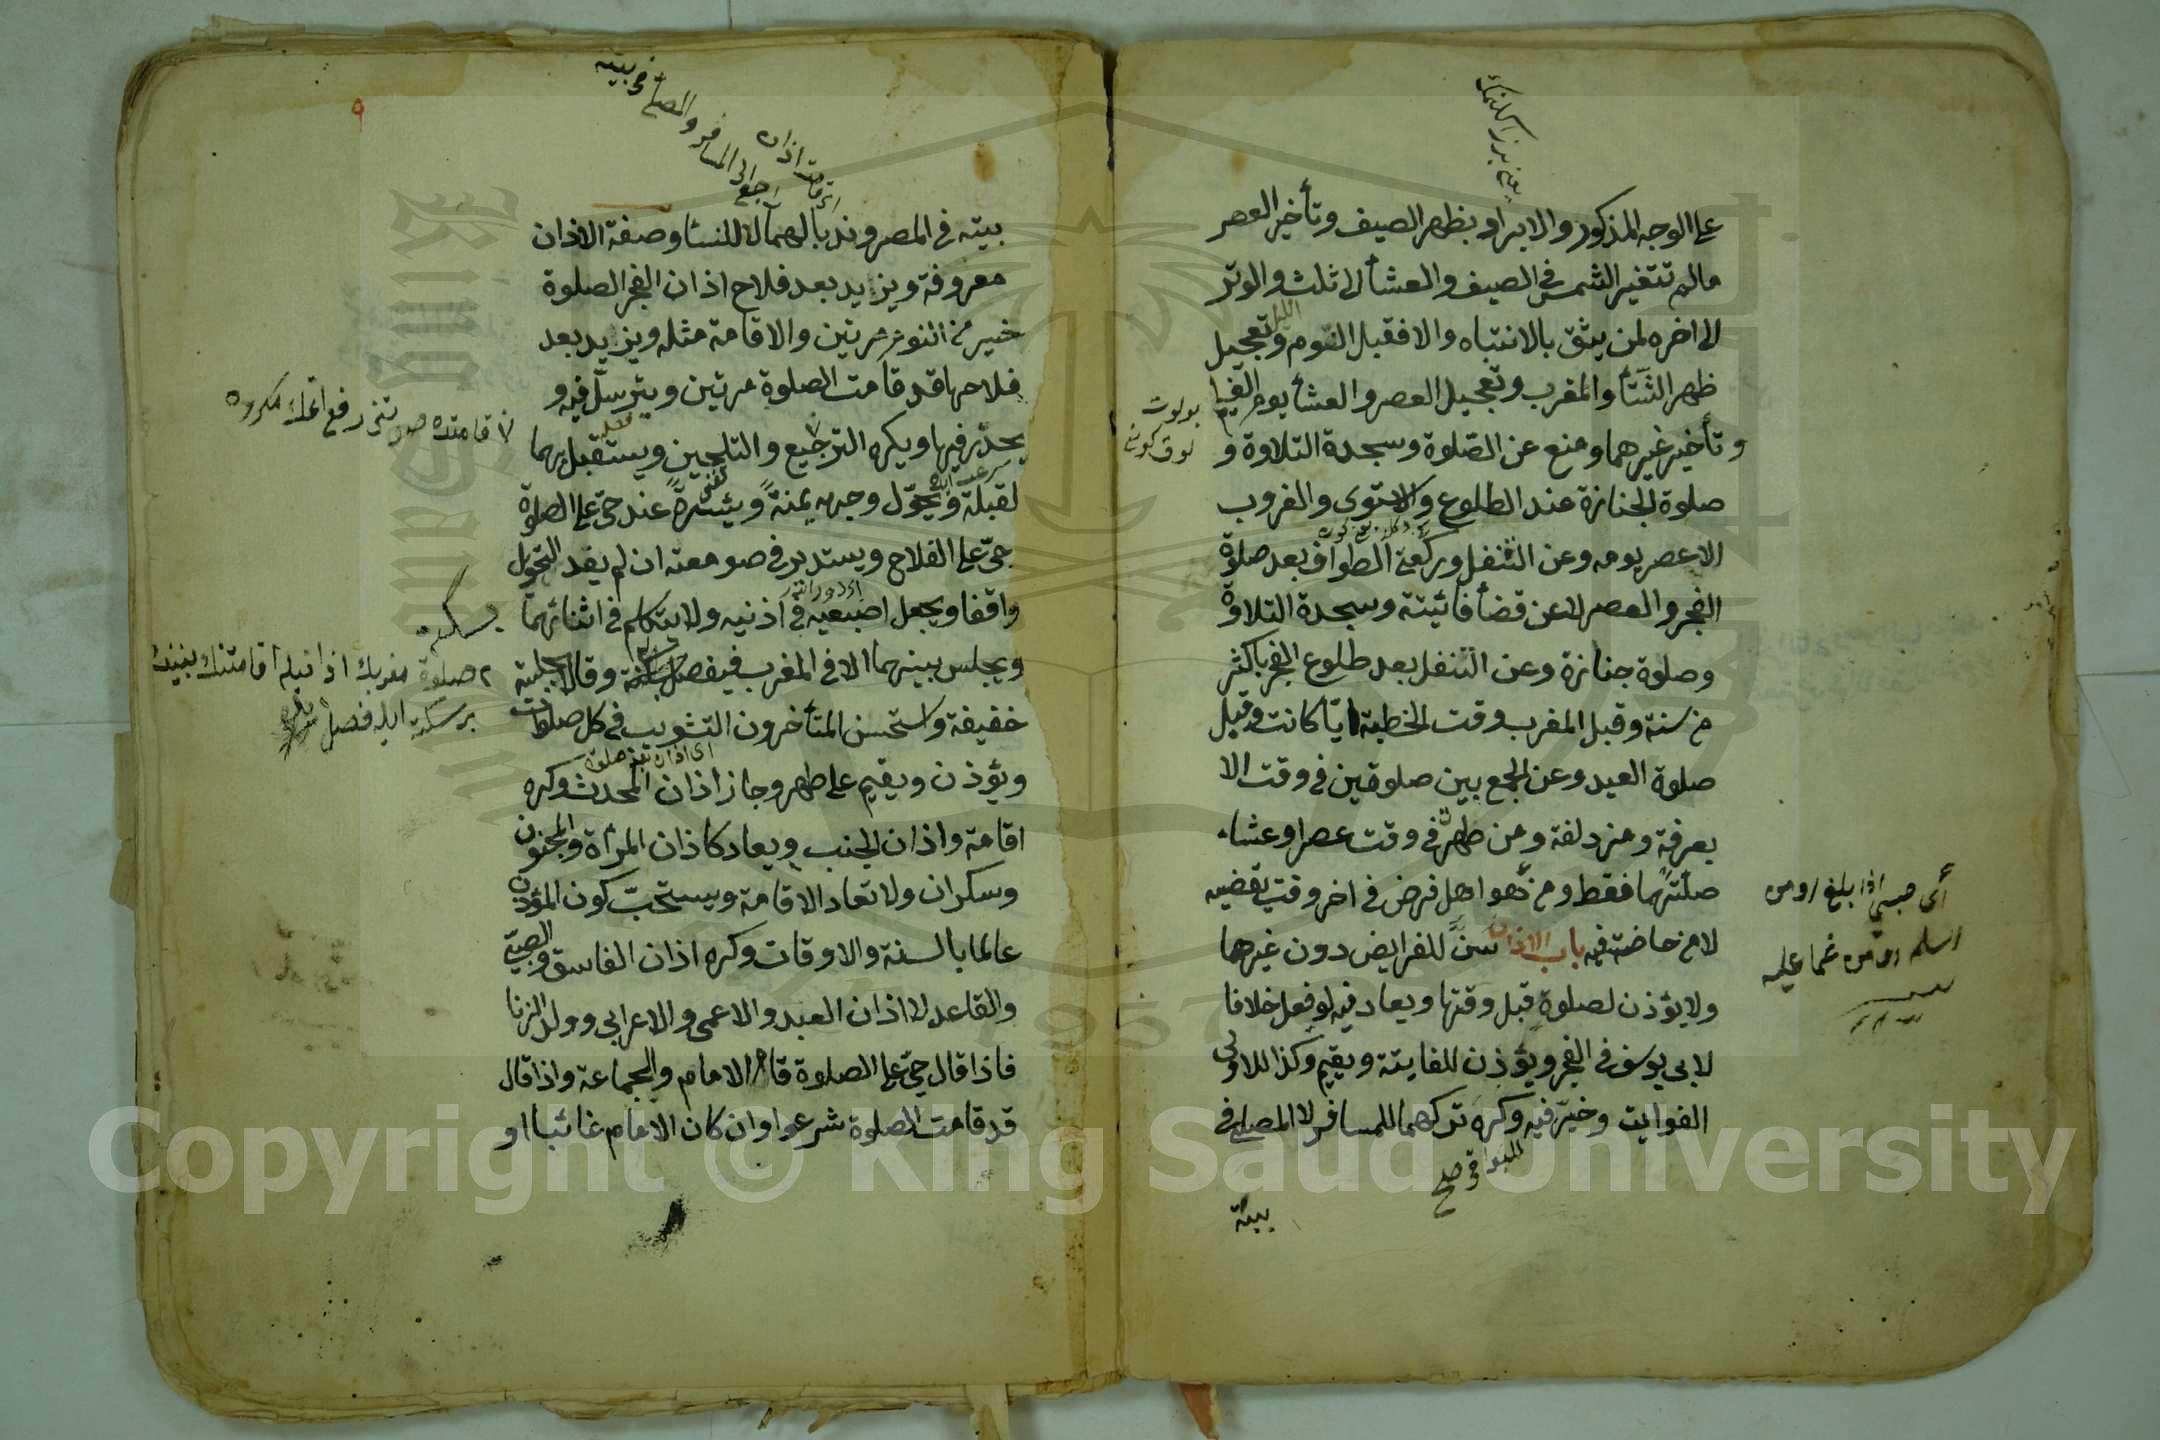 على الوجه المذكور والابراد بظهر الصيف وتأخير العصر
مالم تتغير الشمس في الصيف والعشأ الى ثلث والوتر
الليل
الى اخره لمن يثق بالانتباه والا فقبل النوم وتعجيل
ظهر الشتأ والمغرب وتعجيل العصر والعشأ يوم الغيم
وتأخير غيرهما ومنع عن الصلوة وسجدة التلاوة و
صلوة الجنازة عند الطلوع والاستوى والغروب
الا عصر يومه وعن التنفل وركعتي الطواف بعد صلوة
الفجر والعصر لا عن قضأ فائيتة وسجدة التلاوة
وصلوة جنازة وعن التنفل بعد طلوع الفجر باكثر
من سنة وقبل المغرب وقت الخطبة ايّا كانت وقبل
صلوة العيد وعن الجمع بين صلوتين في وقت الا
بعرفة ومزدلفة ومن طهرت في وقت عصر او عشاء
صلتهما فقط ومن هو اهل فرض في اخر وقت يقضيه
لا من حاضت فيه باب الاذان سنّ للفرايض دون غيرها
ولا يؤذن لصلوة قبل وقتها ويعاد فيه لو فعل خلافا
لابى يوسف في الفجر ويؤذن للفايتة ويقيم وكذا للاولى
الفوايت وخيّر فيه وكره تركهما للمسافر لا المصلي في
للبواقي صح
بيته
أي صبي اذا بلغ او من
اسلم او من غما عليه
بولوت
بيته في المصر وندبا لهما لا للنسا وصفة الاذان
معروفة ويزيد بعد فلاح اذان الفجر الصلوة
خير من النوم مرتين والاقامة مثله ويزيد بعد
فلاحها قد قامت الصلوة مرتين ويترسل فيه و
يحدر فيها ويكره الترجيع والتلحين ويستقبل بهما
لقبلة ويحوّل وجهه يمنةً ويسرةً عند حيّ على الصلوة
حيّ على الفلاح ويستدير في صومعته ان لم يقد التحويل
واقفا ويجعل اصبعيه في اذنيه ولا يتكلم في اثنائهما
ويجلس بينهما الا في المغرب فيفصل بسكتة وقالا بجلسة
خفيفة واستحسن المتأخرون التثويب في كل صلوات
ويؤذن ويقيم على طهر وجاز اذان المحدث وكره
اقامة واذان الجنب ويعاد كاذان المرأة والمجنون
وسكران ولا تعاد الاقامة ويستحبّ كون المؤذن
عالما بالسنة والاوقات وكره اذان الفاسق والصبي
والقاعد لا اذان العبد والاعمى والاعرابى وولد الزنا
فاذا قال حيّ على الصلوة قام الامام والجماعة واذا قال
قد قامت الصلوة شرعوا وان كان الامام غائبا او
Copyright © King Saud University